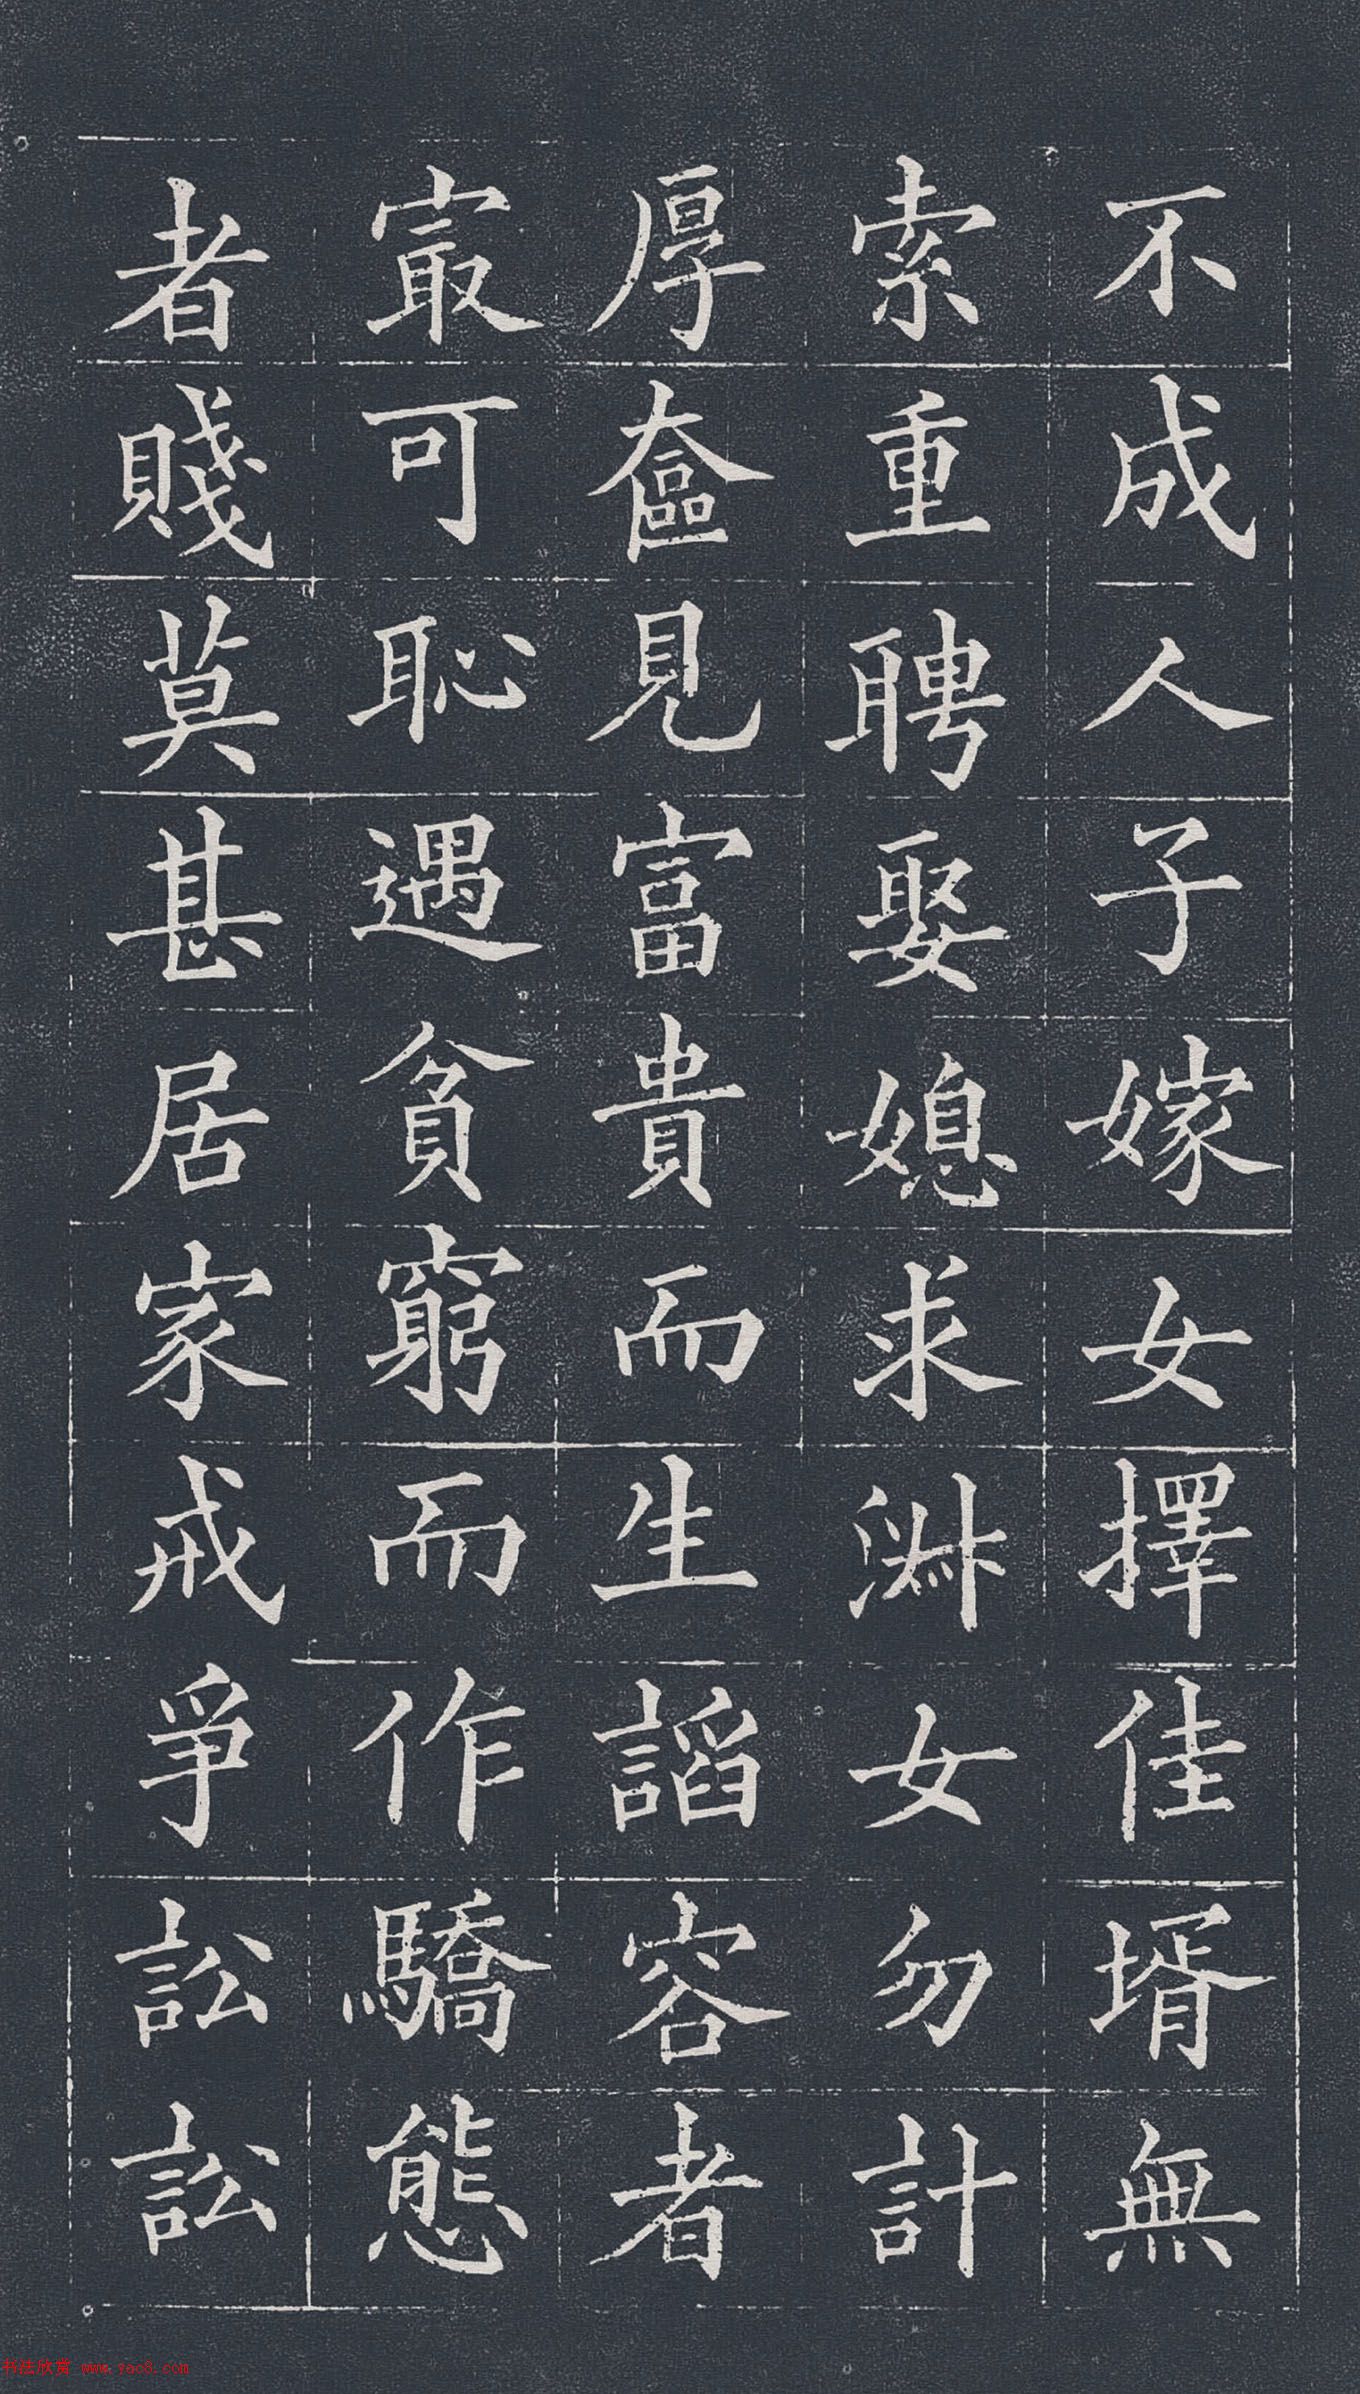 不成人子嫁女擇佳壻無
索重聘娶媳求淑女勿計
厚奩見富貴而生謟容者
㝡可恥遇貧窮而作驕態
者賤莫甚居家戒爭訟訟
书法欣赏 www.yac8.com